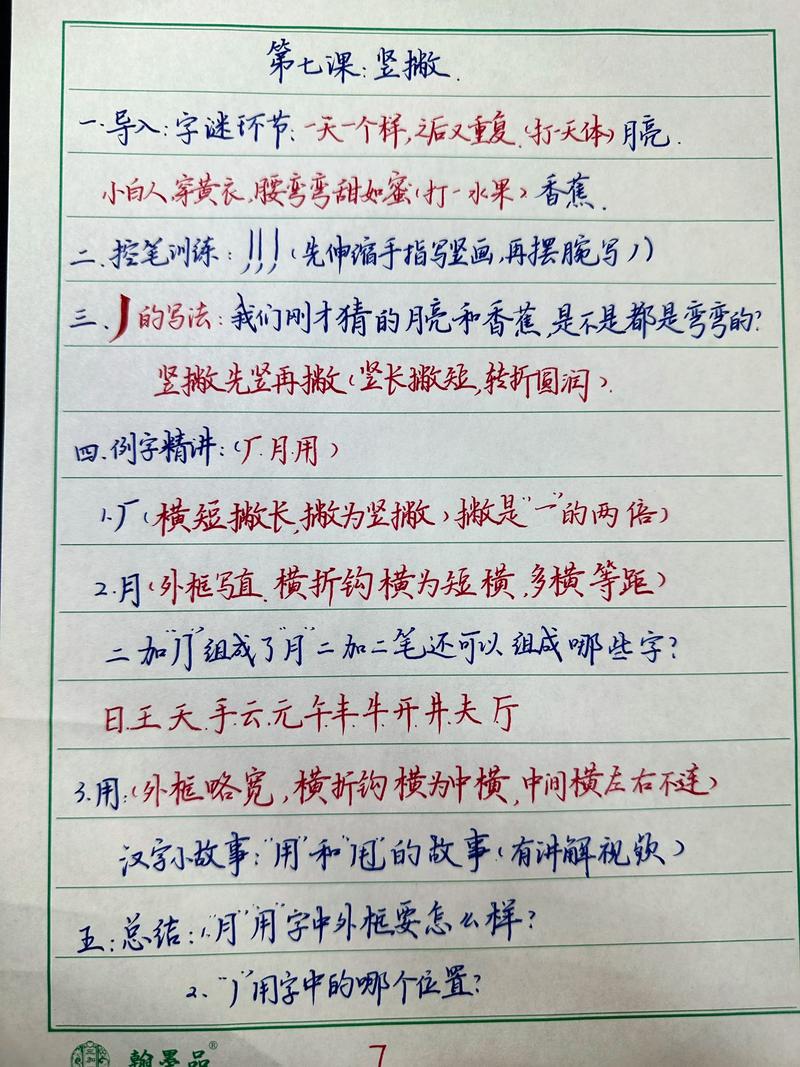 第七课:竖撇.
一.导入:字谜环节:一天一个样,之后又重复.(打一天体)月亮.
小白人,穿黄衣,腰弯弯甜如蜜(打一水果)香蕉.
二.控笔训练:丿丿丿(先伸缩手指写竖画,再摆腕写丿)
三.丿的写法:我们刚才猜的月亮和香蕉,是不是都是弯弯的?
竖撇先竖再撇(竖长撇短,转折圆润).
四.例字精讲:(厂.月.用)
1.厂(横短撇长,撇为竖撇)撇是"一"的两倍)
2.月(外框写直.横折钩横为短横,多横等距)
二加"⺆"组成了"月"二加二笔还可以组成哪些字?
日.王.天.手.云.元.午.丰.牛.开.井.夫.厅
3.用:(外框略宽,横折钩横为中横,中间横左右不连)
汉字小故事:"用"和"甩"的故事(有讲解视频)
五:总结:1."月""用"字中外框要怎么样?
2."丿"用字中的哪个位置?
三和 翰墨品®
7